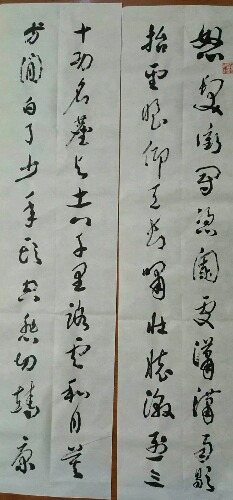 怒髮衝冠憑闌處瀟瀟雨歇
抬望眼仰天長嘯壯懷激烈三
十功名塵与土八千里路雲和月莫
等閒白了少年頭空悲切靖康